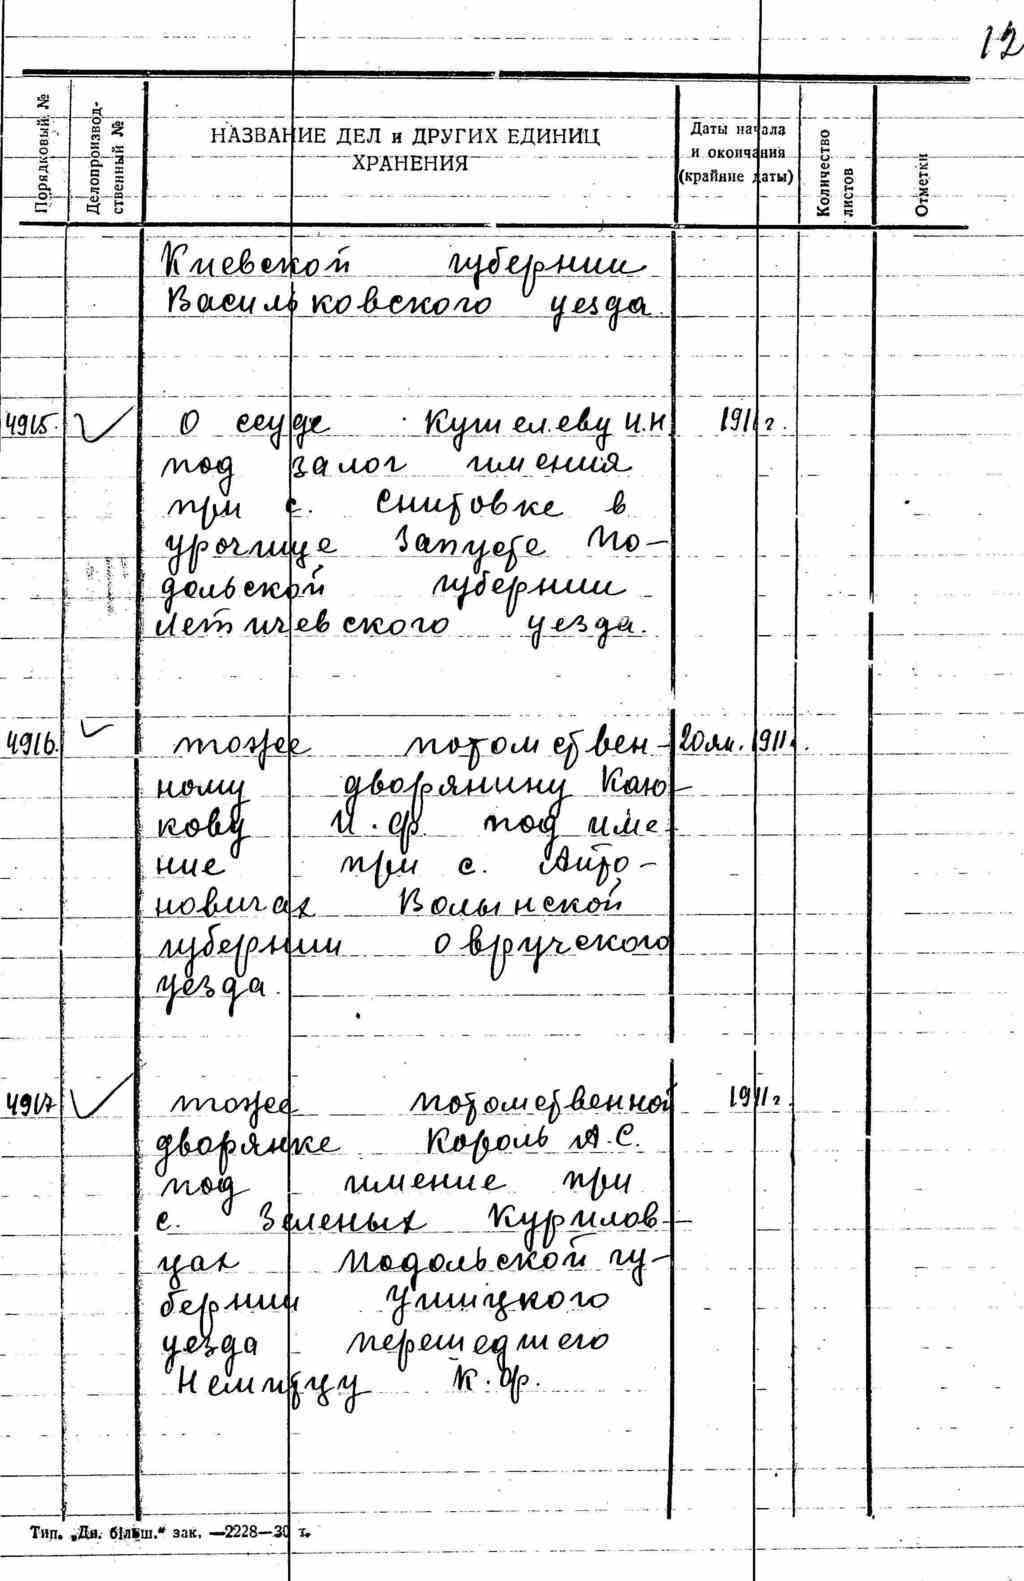 12
Порядковый №
Делопроизвод-
ственный №
НАЗВАНИЕ ДЕЛ и ДРУГИХ ЕДИНИЦ
ХРАНЕНИЯ
Даты начала
и окончания
(крайние даты)
Количество
листов
Отметки
Киевской губернии
Васильковского уезда.
4915. О ссуде Кушелеву И.Н. 1911 г.
под залог имения
при с. Снитовке в
урочище Запусте По-
дольской губернии
Летичевского уезда.
4916. тоже потомствен- 20 ян. 1911.
ному дворянину Каю-
кову И.Ф. под име-
ние при с. Анто-
новичах Волынской
губернии Овручского
уезда.
4917 тоже потомственной 1911 г.
дворянке Король А.С.
под имение при
с. Зеленых Курилов-
цах Подольской гу-
бернии Ушицкого
уезда перешедшего
Немитцу К.Ф.
Тип. „Дн. більш." зак. —2228—30 т.